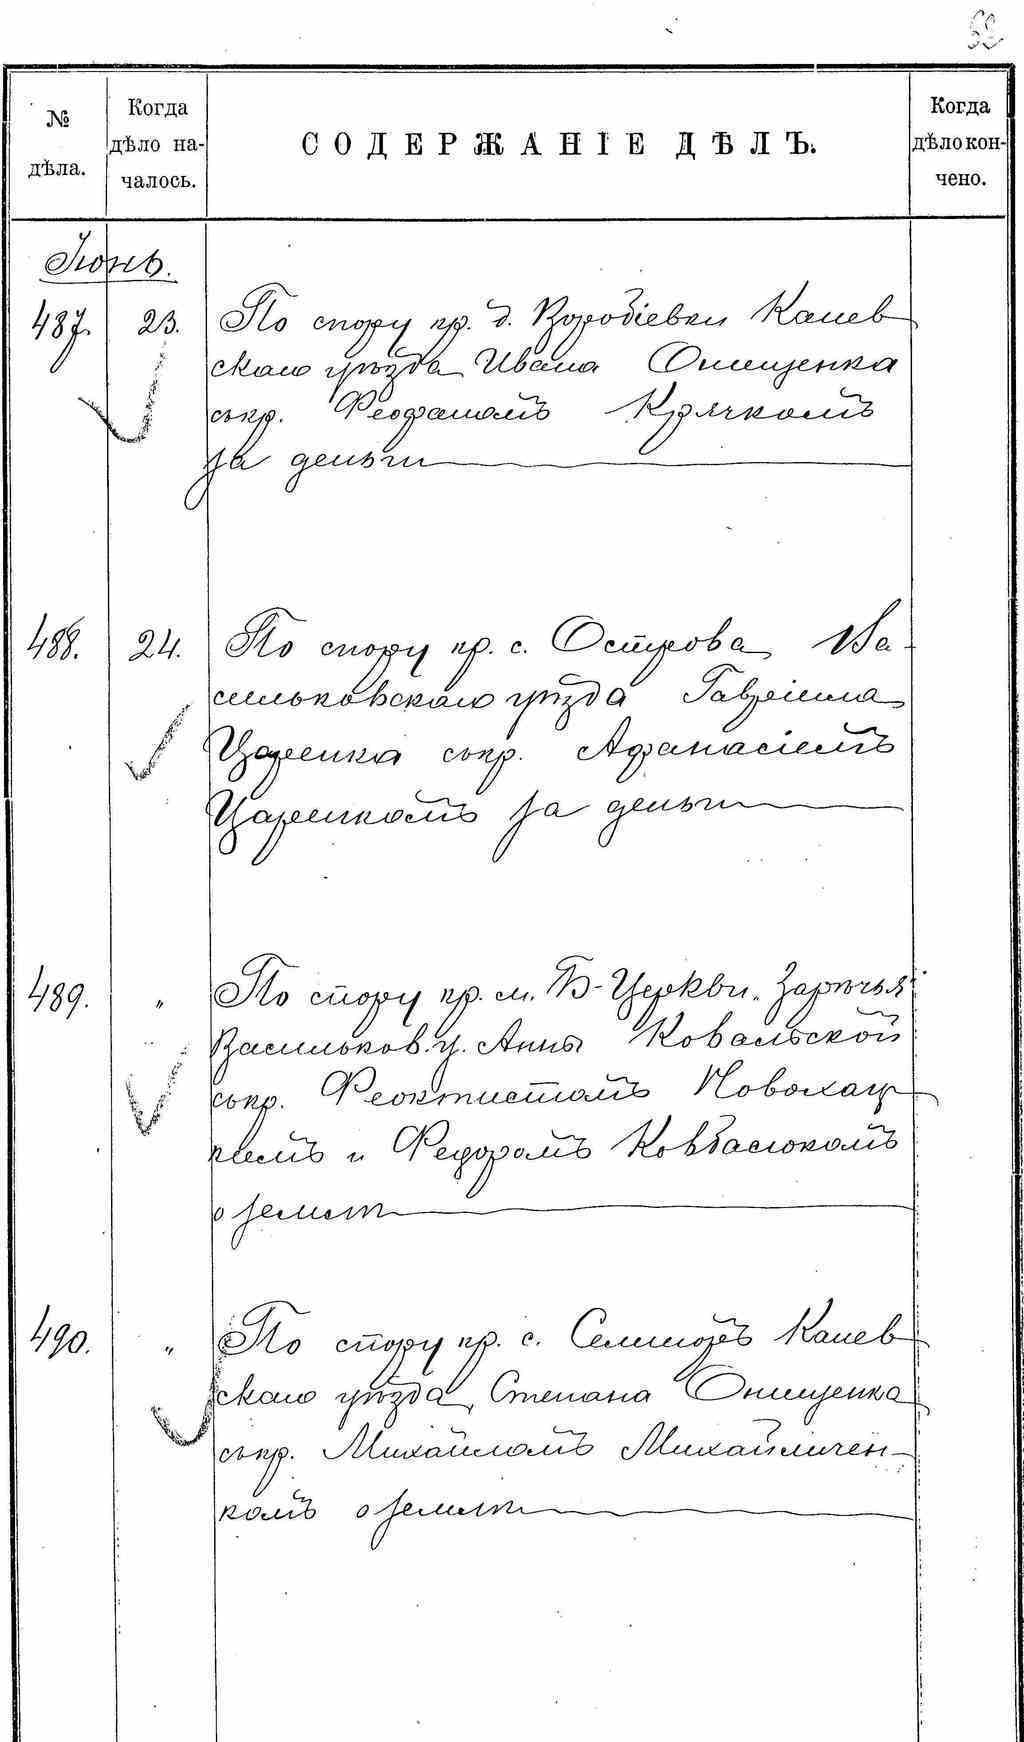 62
№ дѣла.
Когда дѣло на-чалось.
СОДЕРЖАНІЕ ДѢЛЪ.
Когда дѣло кон-чено.
Іюнь.
487. 23. По спору кр. д. Воробіевки Канев
скаго уѣзда Ивана Онищенка
съ кр. Феофаномъ Крячкомъ
за деньги
488. 24. По спору кр. с. Острова, Ва-
сильковскаго уѣзда Гавріила
Царенка съ кр. Афанасіемъ
Царенкомъ за деньги
489. " По спору кр. м. Б-Церкви „Зарѣчья"
Васильков. у. Анны Ковальской
съ кр. Феоктистомъ Новохац
кимъ и Федоромъ Ковбасюкомъ
о землѣ
490. " По спору кр. с. Канев
скаго уѣзда, Степана Онищенка
съ кр. Михайломъ Михайличен-
комъ о землѣ